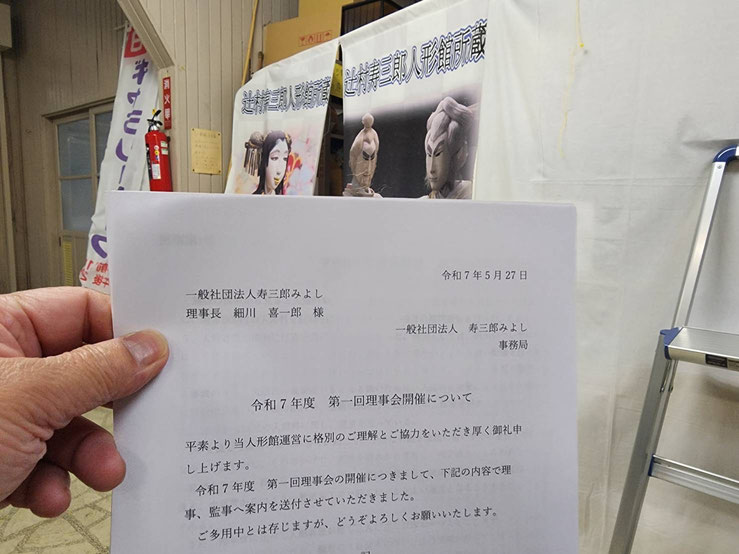 辻村寿三郎人形館所蔵
辻村寿三郎人形館所蔵
消火器
令和7年5月27日
一般社団法人寿三郎みよし
理事長 細川 喜一郎 様
一般社団法人 寿三郎みよし
事務局
令和7年度 第一回理事会開催について
平素より当人形館運営に格別のご理解とご協力をいただき厚く御礼申
し上げます。
令和7年度 第一回理事会の開催につきまして、下記の内容で理
事、監事へ案内を送付させていただきました。
ご多用中とは存じますが、どうぞよろしくお願いいたします。